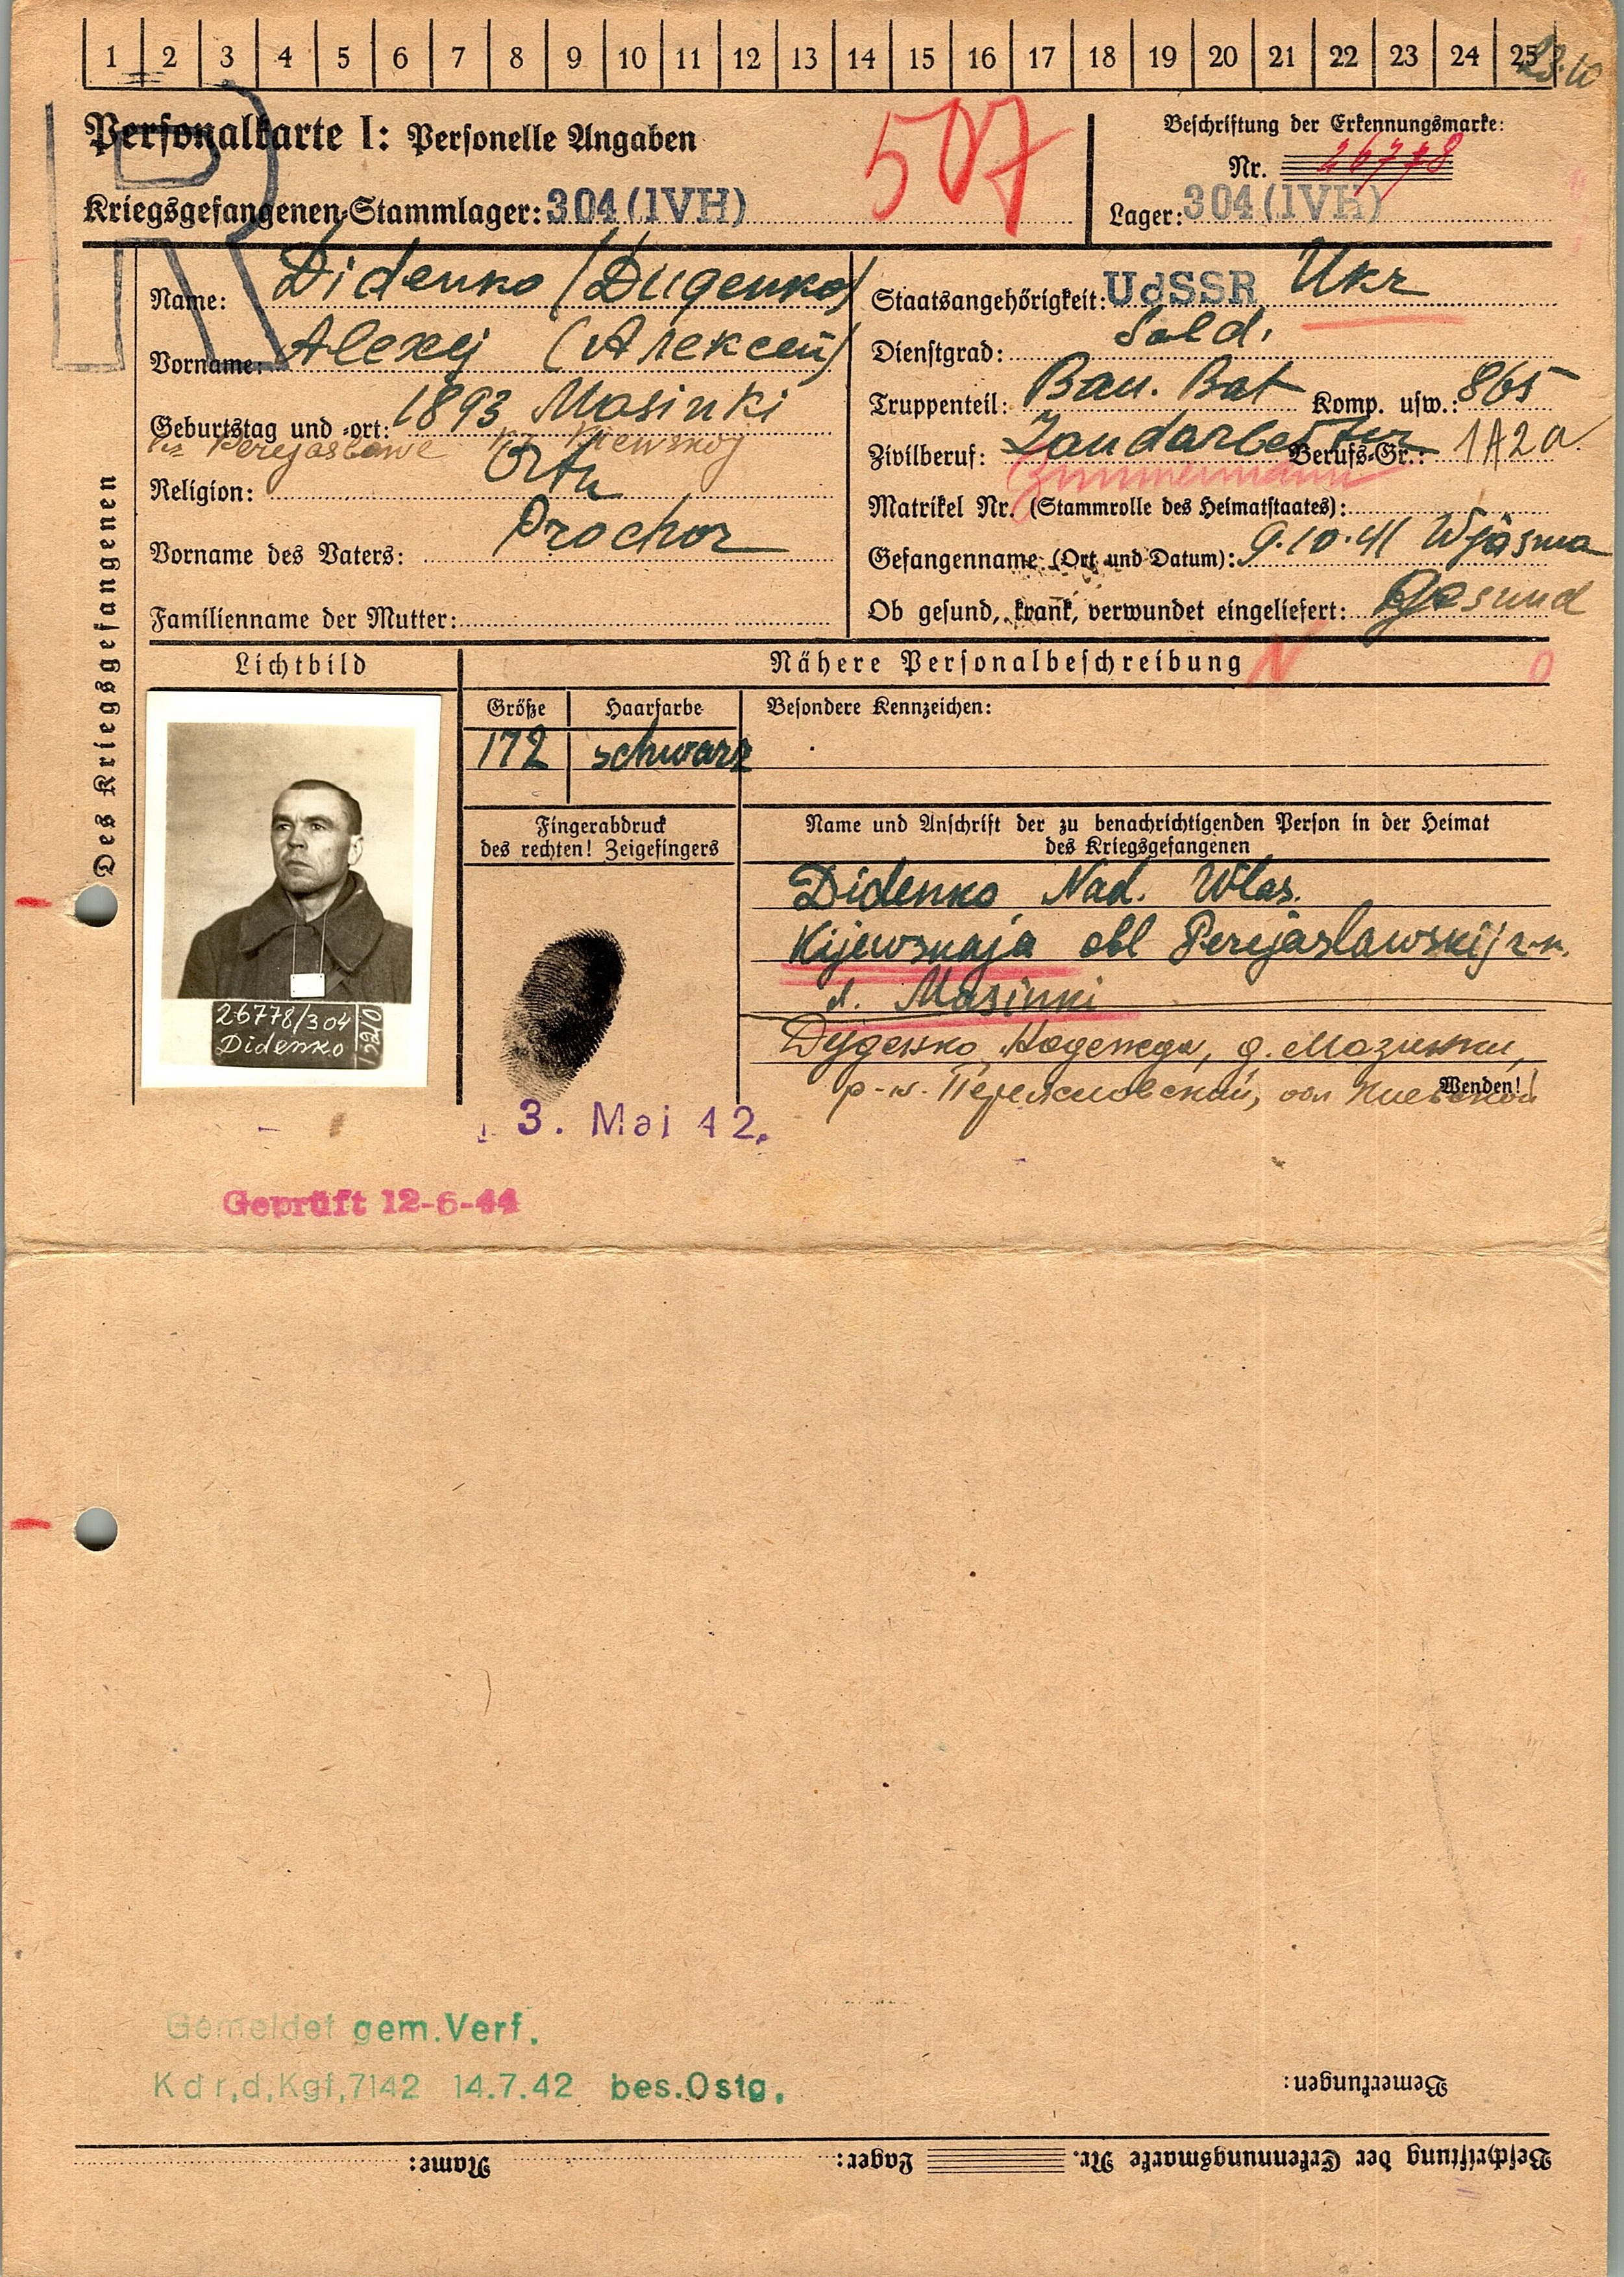 1 2 3 4 5 6 7 8 9 10 11 12 13 14 15 16 17 18 19 20 21 22 23 24 25
Personalkarte I: Personelle Angaben
507
Beschriftung der Erkennungsmarke:
Nr. 26778
Kriegsgefangenen-Stammlager: 304 (IVH)
Lager: 304 (IVH)
Des Kriegsgefangenen
Name: Didenko (Диденко)
Vorname: Alexej (Алексей)
Geburtstag und -ort: 1893 Masinki
Kr. Perejaslawe Kiewskoj
Religion: Orth
Vorname des Vaters: Prochor
Familienname der Mutter:
Staatsangehörigkeit: UdSSR Ukr
Dienstgrad: Sold.
Truppenteil: Bau. Bat Komp. usw.: 865
Zivilberuf: Landarbeiter Berufs-Gr.: 1A2a
Zimmermann
Matrikel Nr. (Stammrolle des Heimatstaates):
Gefangennahme (Ort und Datum): 9.10.41 Wjasma
Ob gesund, krank, verwundet eingeliefert: Gesund
Lichtbild
Nähere Personalbeschreibung N
Größe Haarfarbe Besondere Kennzeichen:
172 schwarz
Fingerabdruck
des rechten! Zeigefingers
Name und Anschrift der zu benachrichtigenden Person in der Heimat
des Kriegsgefangenen
Didenko Nad. Wlas.
Kijewskaja obl Perejaslawskij r-n.
d. Masinki
Диденко Надежда, д. Мазинки,
р-н. Переяславский, обл Киевской
Wenden!
26778/304
Didenko
3. Mai 42.
Geprüft 12-6-44
Gemeldet gem. Verf.
Kdr.d.Kgf.7142 14.7.42 bes.Ostg.
Bemerkungen:
Beschriftung der Erkennungsmarke Nr. Lager: Name: